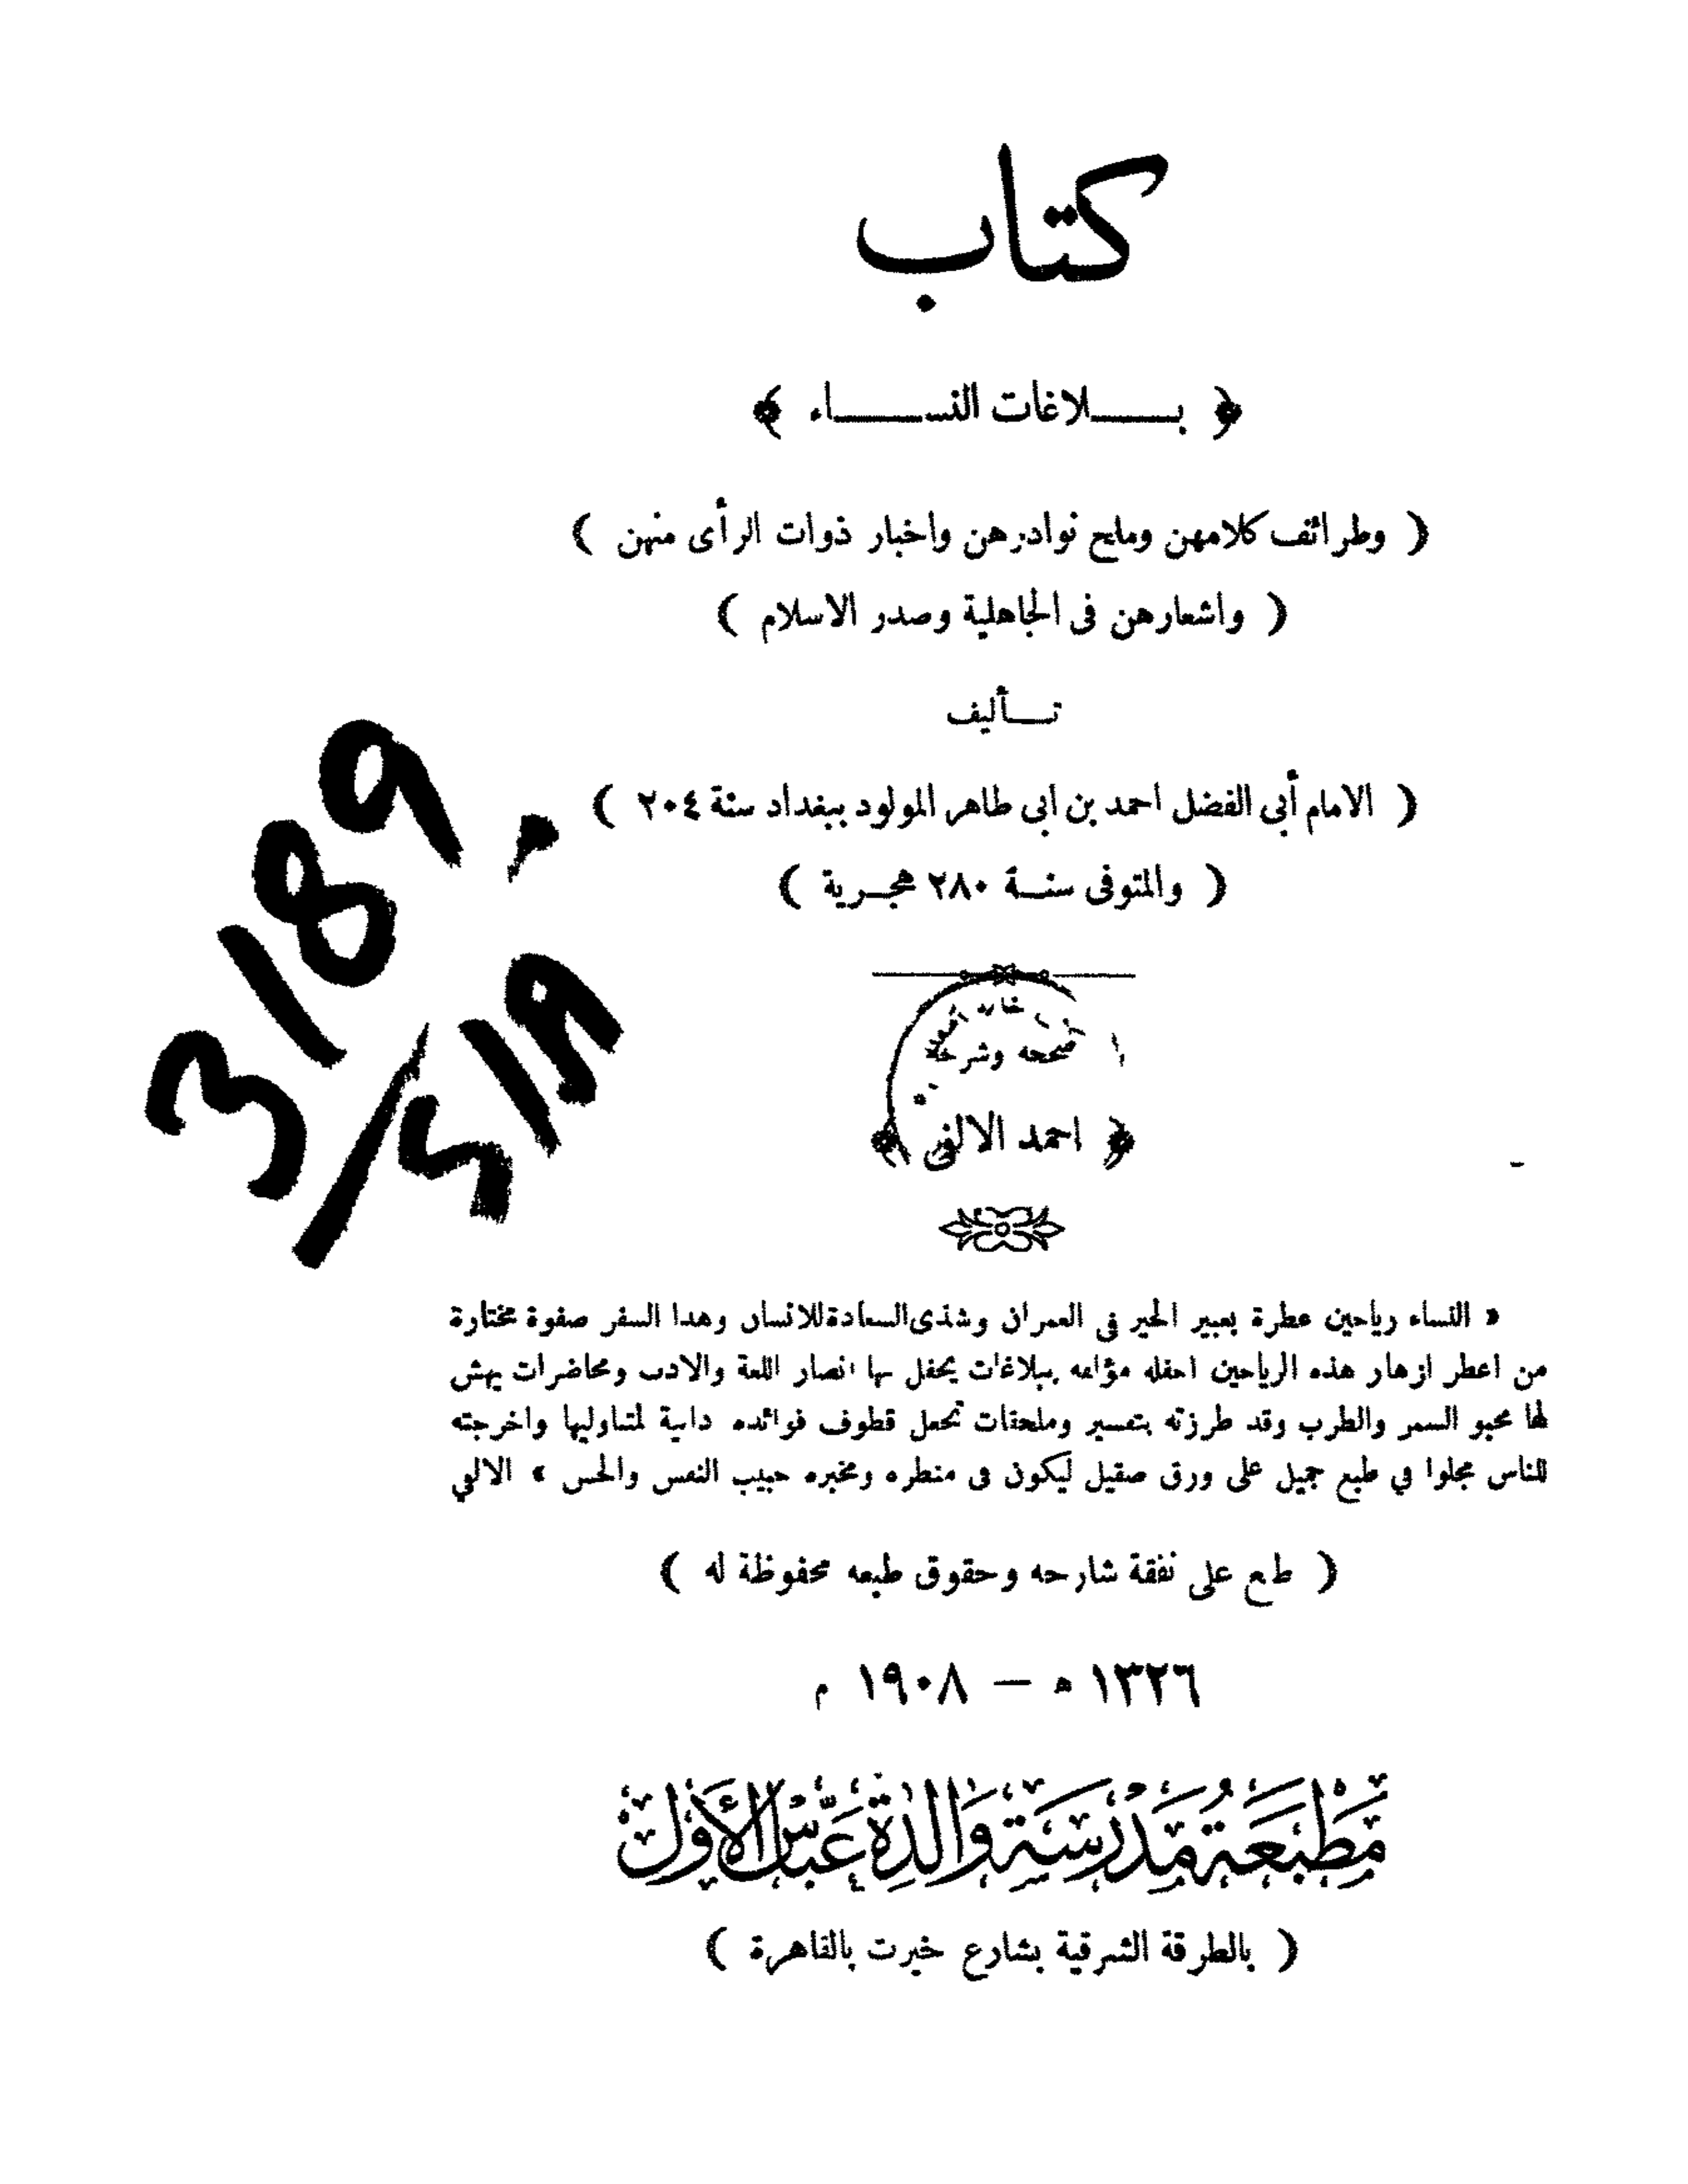 كتاب
﴿ بـــــلاغات النســـــاء ﴾
( وطرائف كلامهن وملح نوادرهن واخبار ذوات الرأى منهن )
( واشعارهن فى الجاهلية وصدر الاسلام )
تـــأليف
( الامام أبى الفضل احمد بن ابى طاهر المولود ببغداد سنة ٢٠٤ )
( والمتوفى سنــة ٢٨٠ هجــرية )
صححه وشرحه
﴿ احمد الالفى ﴾
3189.
/519
« النساء رياحين عطرة بعبير الخير فى العمران وشذى السعادة للانسان وهذا السفر صفوة مختارة
من اعطر ازهار هذه الرياحين احفله مؤلفه ببلاغات يحفل بها انصار اللغة والادب ومحاضرات يهش
لها محبو السمر والطرب وقد طرزته بتفسير وملحقات تجعل قطوف فوائده دانية لمتناوليها واخرجته
للناس مجلوا في طبع جميل على ورق صقيل ليكون فى منظره ومخبره حبيب النفس والحس » الالفي
( طبع على نفقة شارحه وحقوق طبعه محفوظة له )
١٣٢٦ ه — ١٩٠٨ م
مَطْبَعَة مَدْرَسَة وَالِدَة عَبَّاس الأَوَّل
( بالطرقة الشرقية بشارع خيرت بالقاهرة )